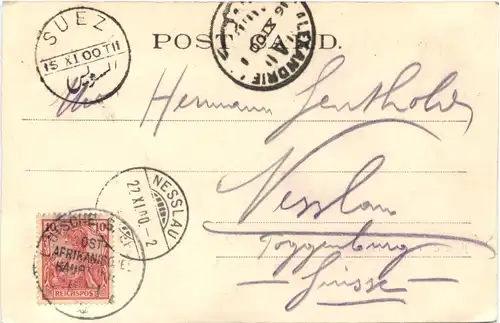 SUEZ
15 XI 00 T II
السويس
ALEXANDRIE
XI 00
A
POST CARD.
Herrn Hermann
Nesslau
Toggenburg
Suisse
NESSLAU
22.XI.00.-2
10 10
REICHSPOST
DEUTSCHE
OST
AFRIKANISCHE